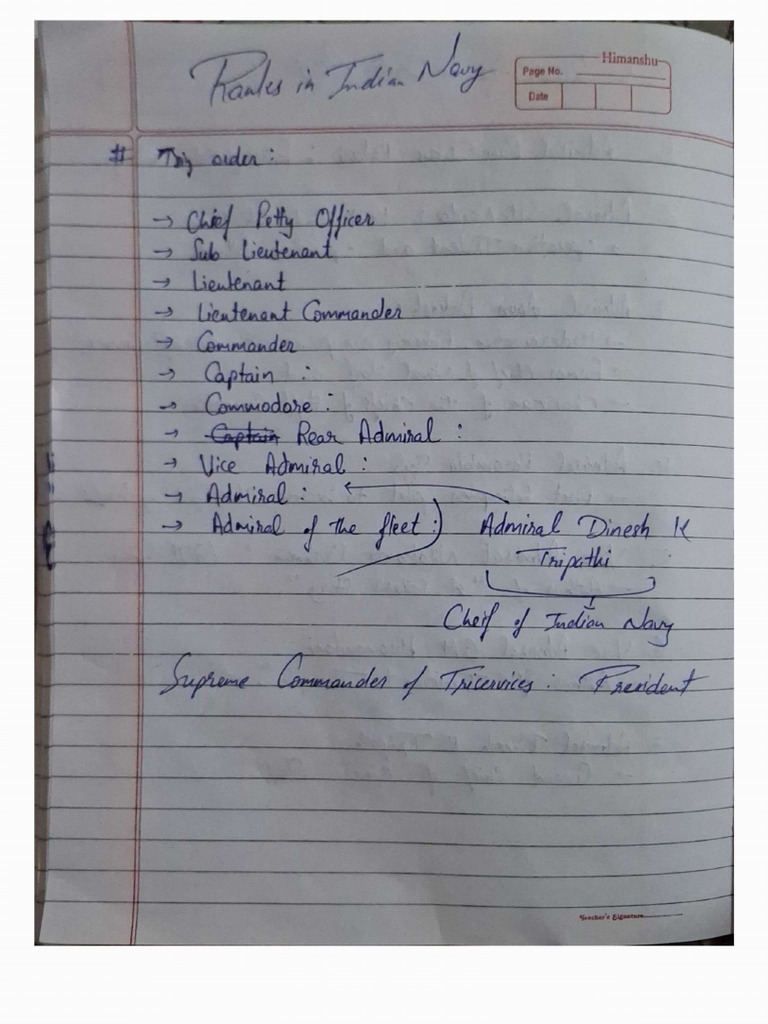 Ranks in Indian Navy
Himanshu
Page No.
Date
# order :
→ Chief Petty Officer
→ Sub Lieutenant
→ Lieutenant
→ Lieutenant Commander
→ Commander
→ Captain :
→ Commodore :
→ Captain Rear Admiral :
→ Vice Admiral :
→ Admiral :
→ Admiral of the fleet :)
Admiral Dinesh K
Tripathi
Cheif of Indian Navy
Supreme Commander of Triservices : President
Teacher's Signature